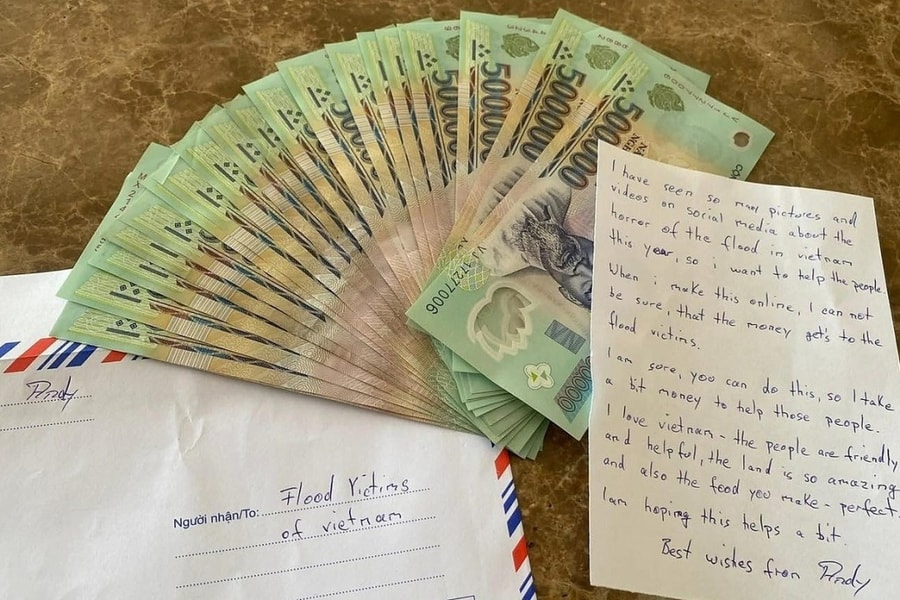 500000
500000
500000
500000
VJ 17277006
I have seen so many pictures and
videos on social media about the
horror of the flood in vietnam
this year, so i want to help the people.
When i make this online, I can not
be sure, that the money get's to the
flood victims.
I am sore, you can do this, so I take
a bit money to help those people.
I love vietnam - the people are friendly
and helpful, the land is so amazing
and also the food you make - perfect.
I am hoping this helps a bit.
Best wishes from Andy
Andy
Người nhận/To: Flood Victims
of vietnam